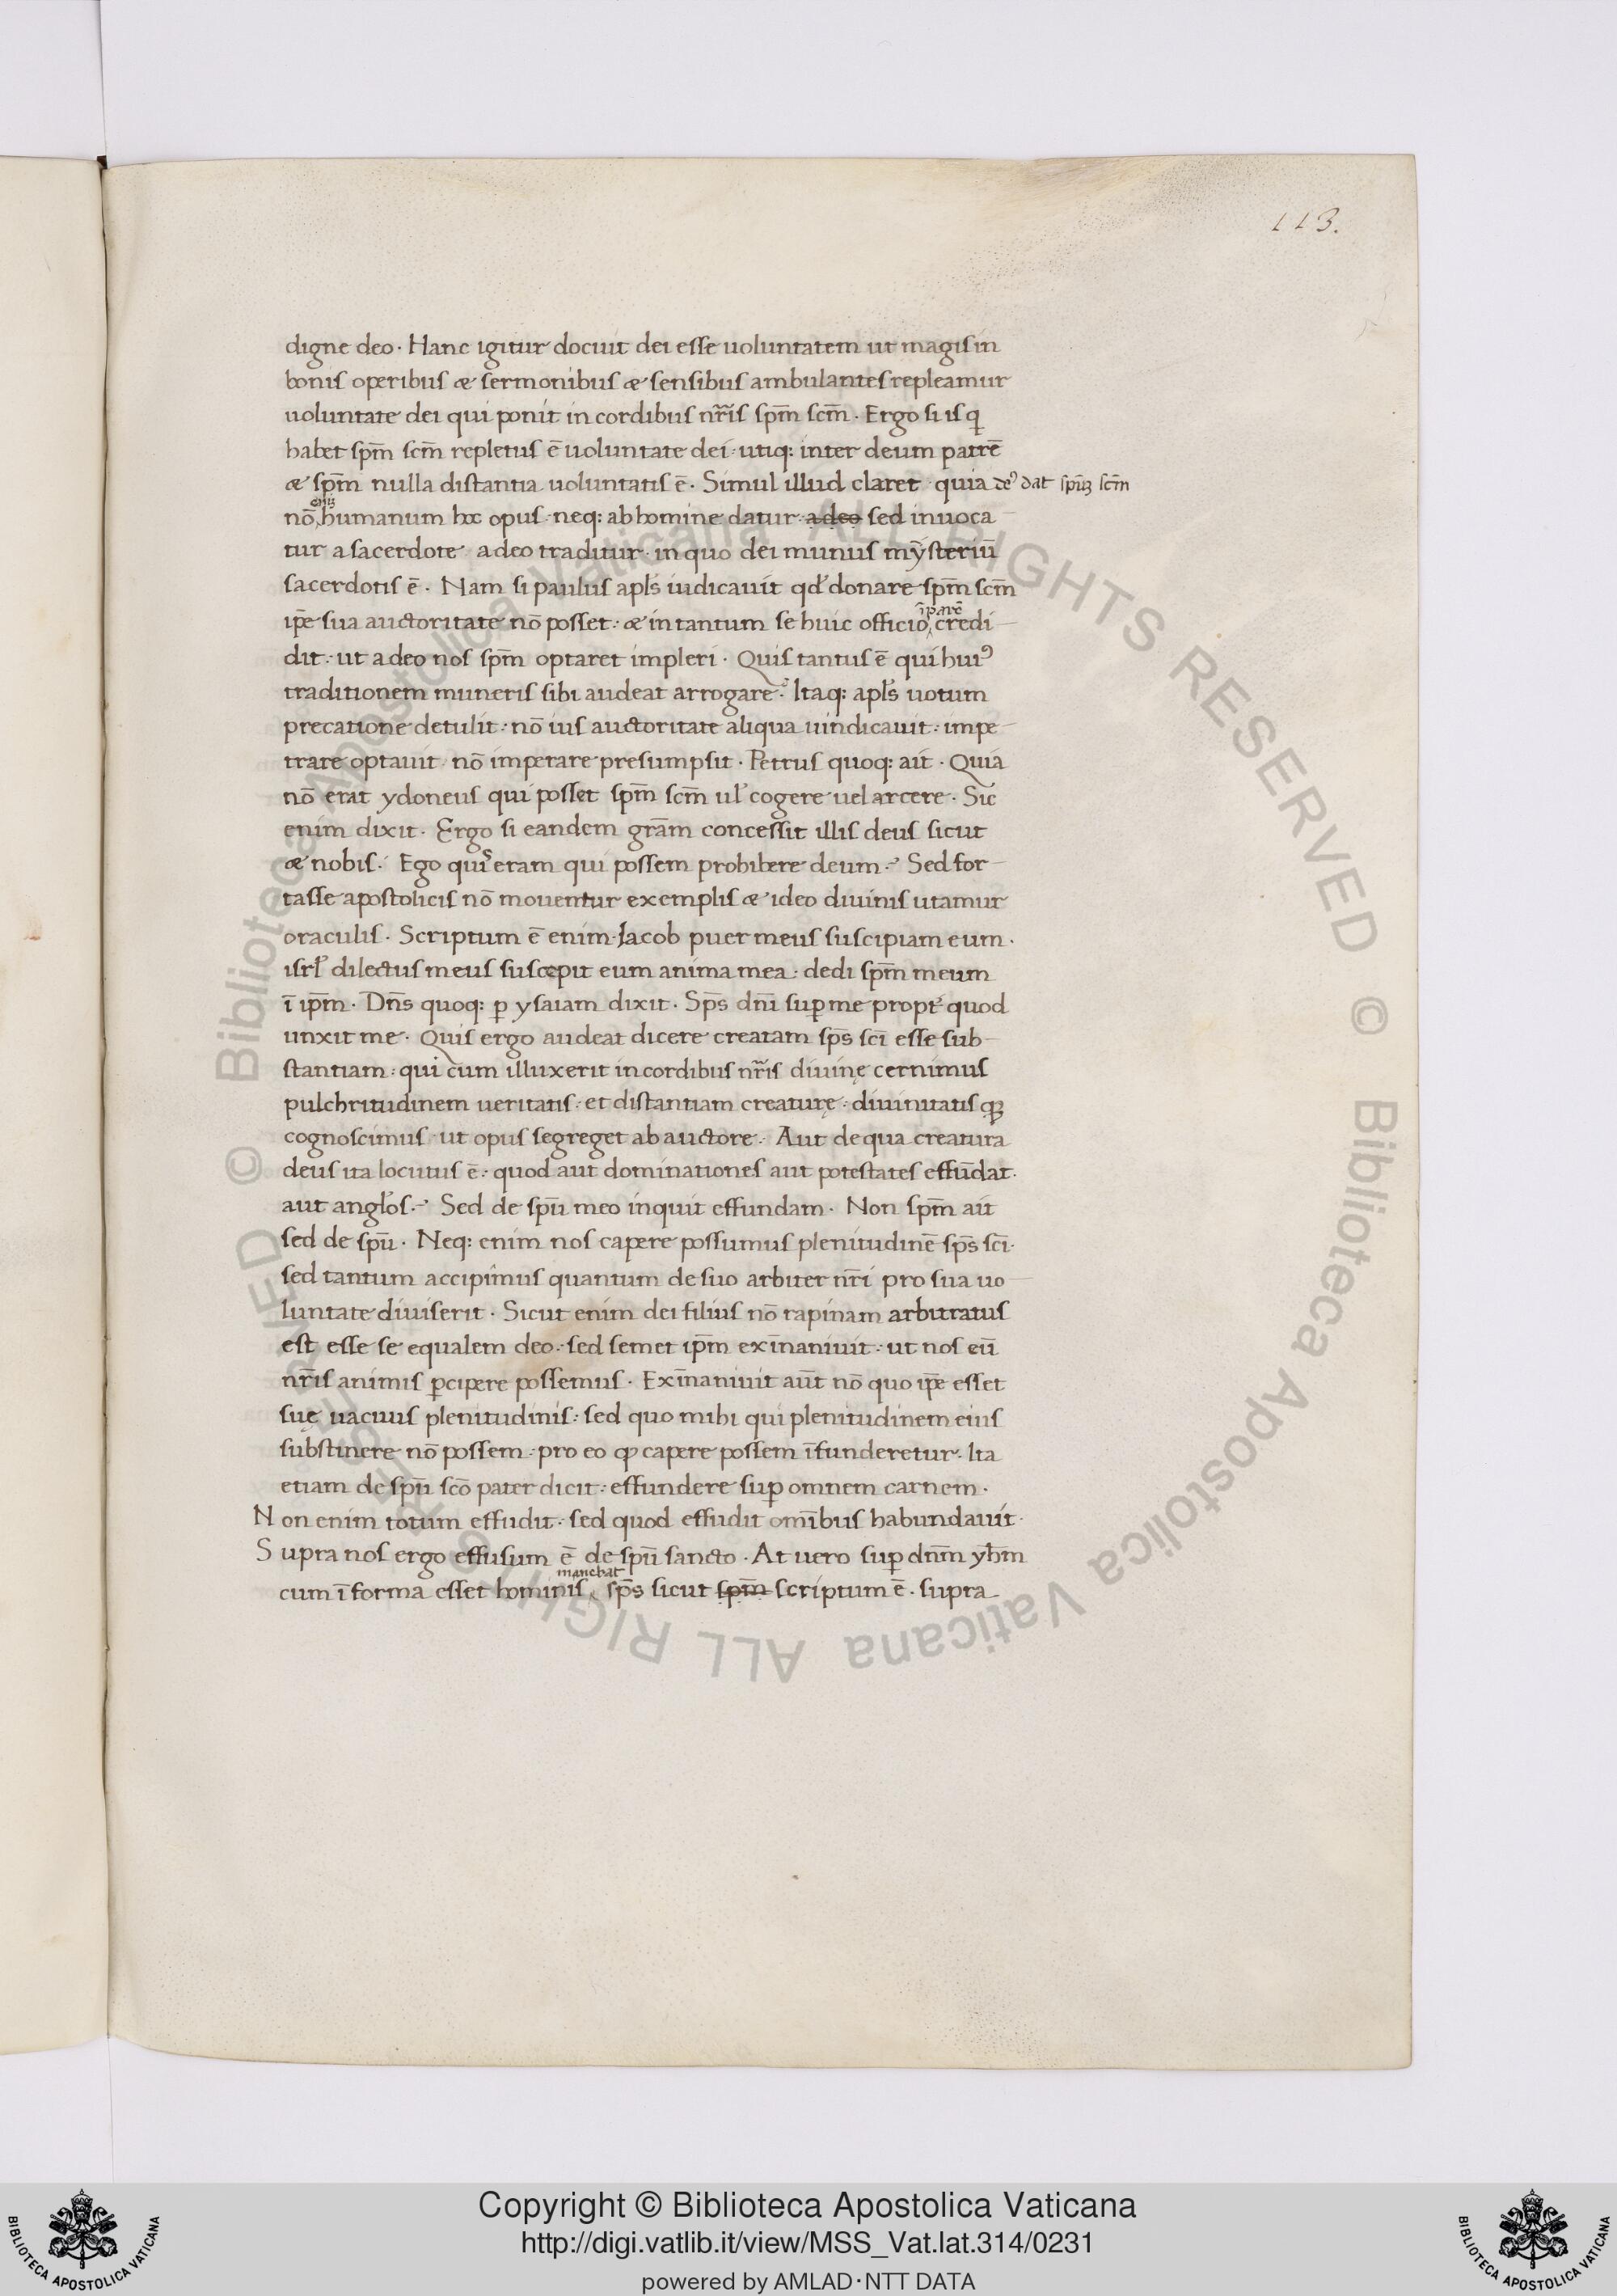 113.
digne deo · Hanc igitur docuit dei esse uoluntatem ut magis in
bonis operibus æ sermonibus æ sensibus ambulantes repleamur
uoluntate dei qui ponit in cordibus nr̄is sp̄m sc̄m · Ergo si is q
habet sp̄m sc̄m repletus ē uoluntate dei · utiq: inter deum patrē
æ sp̄m nulla distantia uoluntatis ē · Simul illud claret · quia de⁹ dat spūȝ sc̄m
eniȝ
nō humanum hoc opus · neq: ab homine datur a deo sed inuoca
tur a sacerdote a deo traditur · in quo dei munus mẏsteriū
sacerdotis ē · Nam si paulus apl̄s iudicauit qd' donare sp̄m sc̄m
īparē
ip̄e sua auctoritate nō posset · æ in tantum se huic officio credi
dit · ut a deo nos sp̄m optaret impleri · Quis tantus ē qui hui⁹
traditionem muneris sibi audeat arrogare ·? Itaq: apl̄s uotum
precatione detulit · nō ius auctoritate aliqua uindicauit : impe
trare optauit · nō imperare presumpsit · Petrus quoq: ait · Quia
nō erat ydoneus qui posset sp̄m sc̄m ul' cogere uel arcere · Sic
enim dixit · Ergo si eandem gr̄am concessit illis deus sicut
æ nobis · Ego quis eram qui possem prohibere deum ·? Sed for
tasse apostolicis nō mouentur exemplis æ ideo diuinis utamur
oraculis · Scriptum ē enim · Iacob puer meus suscipiam eum ·
isrl' dilectus meus suscepit eum anima mea · dedi sp̄m meum
ī ip̄m · Dn̄s quoq: ꝑ ysaiam dixit · Sp̄s dn̄i suꝑ me propt' quod
unxit me · Quis ergo audeat dicere creatam sp̄s sc̄i esse sub
stantiam : qui cum illuxerit in cordibus nr̄is diuinę cernimus
pulchritudinem ueritatis · et distantiam creaturę · diuinitatisqȝ
cognoscimus · ut opus segreget ab auctore · Aut de qua creatura
deus ita locutus ē · quod aut dominationes aut potestates effūdat ·
aut angl'os ·? Sed de spū meo inquit effundam · Non sp̄m ait
sed de spū · Neq: enim nos capere possumus plenitudinē sp̄s sc̄i ·
sed tantum accipimus quantum de suo arbiter nr̄i pro sua uo
luntate diuiserit · Sicut enim dei filius nō rapinam arbitratus
est esse se equalem deo · sed semet ip̄m exīnaniuit · ut nos eū
nr̄is animis ꝑcipere possemus · Exīnaniuit aūt nō quo ip̄e esset
suę uacuus plenitudinis : sed quo mihi qui plenitudinem eius
substinere nō possem · pro eo qȝ capere possem īfunderetur · Ita
etiam de spū sc̄o pater dicit : effundere suꝑ omnem carnem ·
Non enim totum effudit · sed quod effudit omībus habundauit ·
Supra nos ergo effusum ē de spū sancto · At uero suꝑ dn̄m yh̄m
manebat
cum ī forma esset hominis sp̄s sicut sp̄m scriptum ē · supra
© Biblioteca Apostolica Vaticana ALL RIGHTS RESERVED © Biblioteca Apostolica Vaticana ALL RIGHTS RESERVED
Copyright © Biblioteca Apostolica Vaticana
http://digi.vatlib.it/view/MSS_Vat.lat.314/0231
powered by AMLAD·NTT DATA
BIBLIOTECA APOSTOLICA VATICANA
BIBLIOTECA APOSTOLICA VATICANA